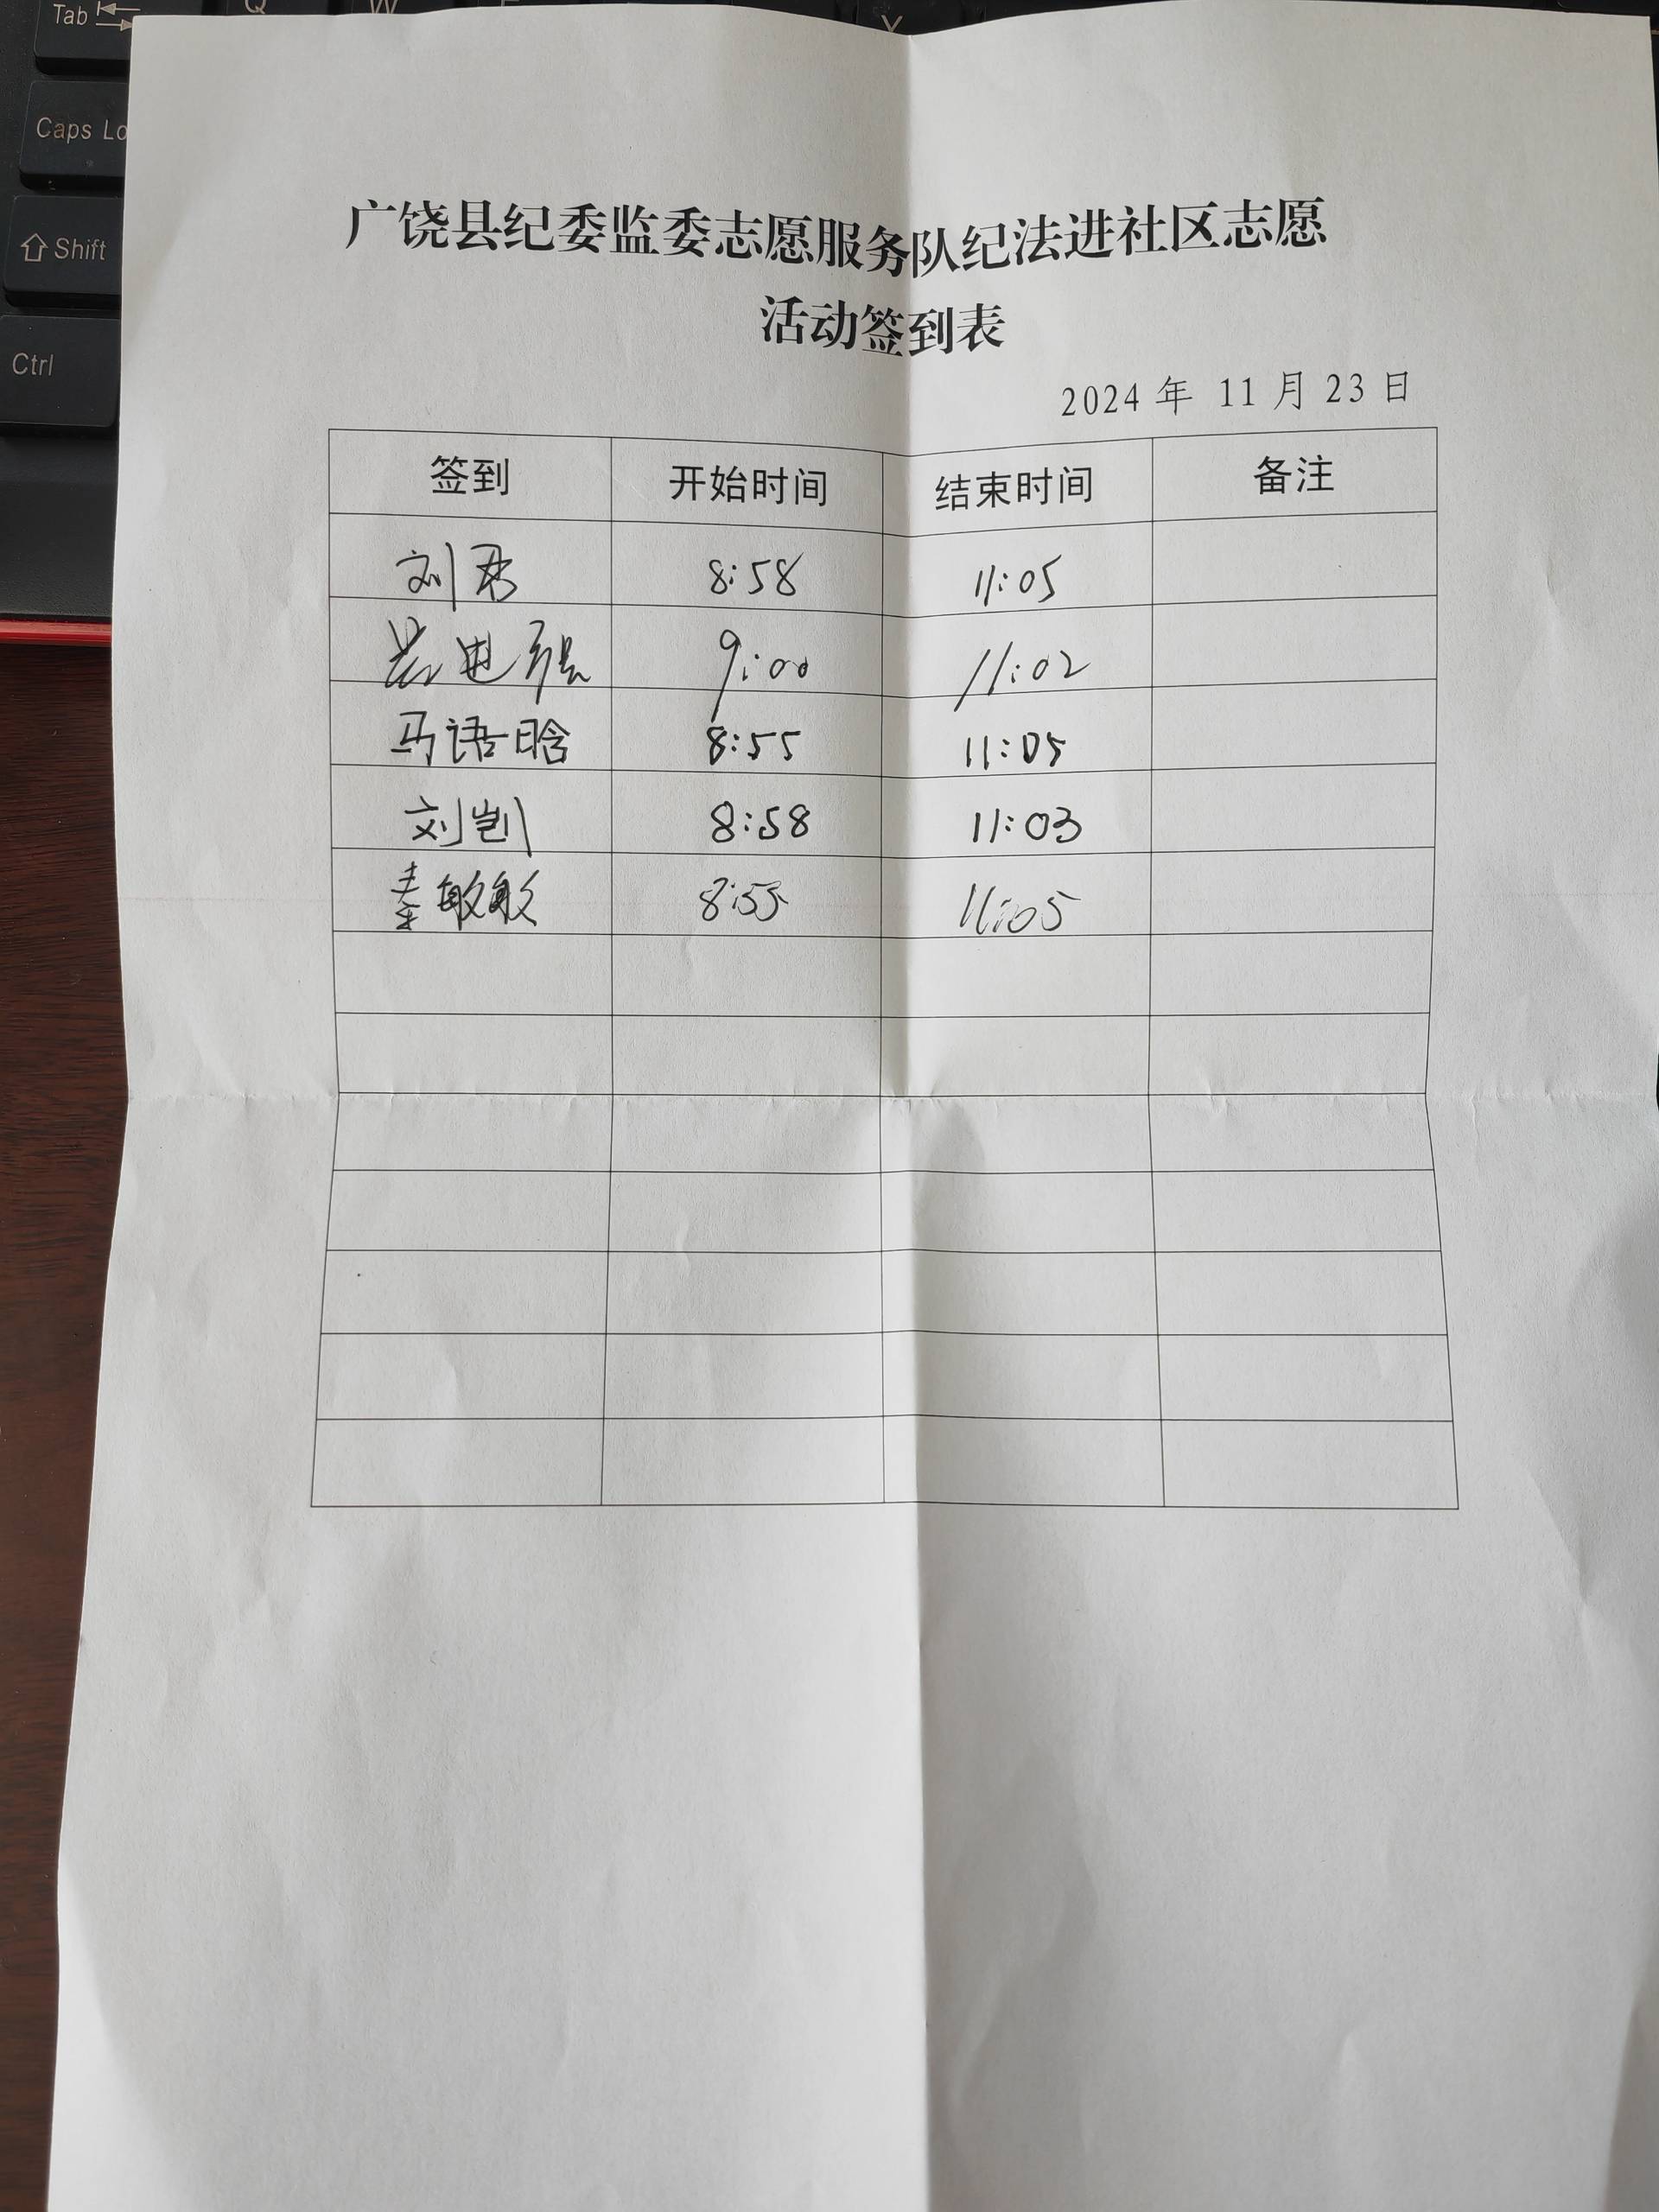 Tab
Q
W
Y
Caps Lo
Shift
Ctrl
广饶县纪委监委志愿服务队纪法进社区志愿
活动签到表
2024 年 11 月 23 日
签到 开始时间 结束时间 备注
刘君 8:58 11:05
进 9:00 11:02
马语晗 8:55 11:05
刘凯 8:58 11:03
秦敏敏 8:55 11:05